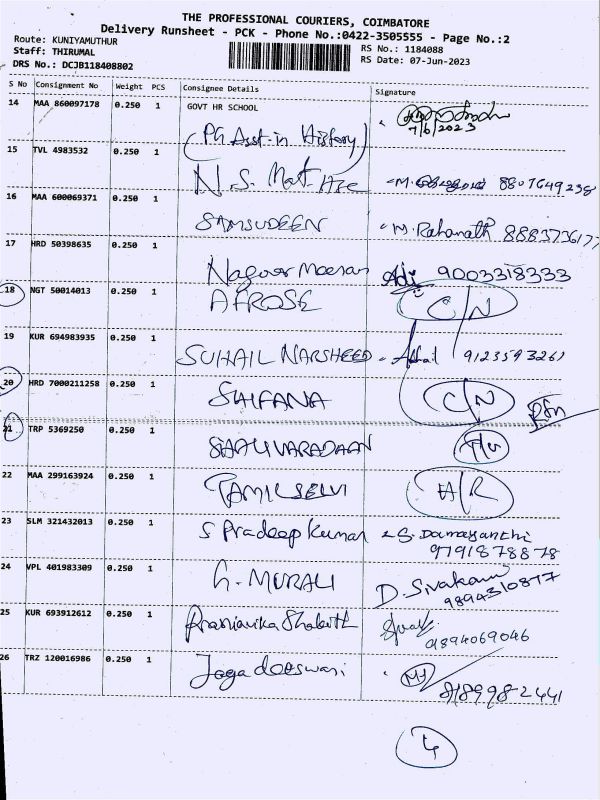 THE PROFESSIONAL COURIERS, COIMBATORE
Delivery Runsheet - PCK - Phone No.:0422-3505555 - Page No.:2
Route: KUNIYAMUTHUR
RS No.: 1184088
Staff: THIRUMAL
RS Date: 07-Jun-2023
DRS No.: DCJB118408802
S No Consignment No Weight PCS Consignee Details Signature
14 MAA 860097178 0.250 1 GOVT HR SCHOOL
7/6/2023
(PG Asst. in History)
15 TVL 4983532 0.250 1
N.S. Mat Hre 8807649238
16 MAA 600069371 0.250 1
SAMSUDEEN M. Rahanath 8883736177
17 HRD 50398635 0.250 1
Nagoor Meeran 9003318333
18 NGT 50014013 0.250 1
AFROSE C/N
19 KUR 694983935 0.250 1
SUHAIL NARSHEED 9123593261
20 HRD 7000211258 0.250 1
SHIFANA C/N
21 TRP 5369250 0.250 1
22 MAA 299163924 0.250 1
TAMILSELVI
23 SLM 321432013 0.250 1
S Pradeep Kumar S. Damayanthi
9791878878
24 VPL 401983309 0.250 1
G. MURALI D. Sivakami
9894310877
25 KUR 693912612 0.250 1
9894069046
26 TRZ 120016986 0.250 1
Jagadeeswari
8189982441
4